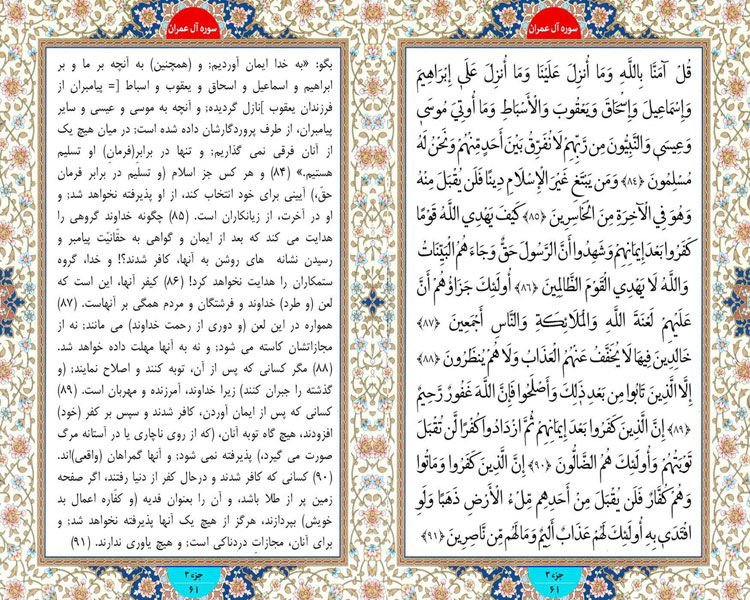 سوره آل عمران
قُلْ آمَنَّا بِاللَّهِ وَمَا أُنزِلَ عَلَيْنَا وَمَا أُنزِلَ عَلَىٰ إِبْرَاهِيمَ
وَإِسْمَاعِيلَ وَإِسْحَاقَ وَيَعْقُوبَ وَالْأَسْبَاطِ وَمَا أُوتِيَ مُوسَىٰ
وَعِيسَىٰ وَالنَّبِيُّونَ مِن رَّبِّهِمْ لَا نُفَرِّقُ بَيْنَ أَحَدٍ مِّنْهُمْ وَنَحْنُ لَهُ
مُسْلِمُونَ ﴿۸۴﴾ وَمَن يَبْتَغِ غَيْرَ الْإِسْلَامِ دِينًا فَلَن يُقْبَلَ مِنْهُ
وَهُوَ فِي الْآخِرَةِ مِنَ الْخَاسِرِينَ ﴿۸۵﴾ كَيْفَ يَهْدِي اللَّهُ قَوْمًا
كَفَرُوا بَعْدَ إِيمَانِهِمْ وَشَهِدُوا أَنَّ الرَّسُولَ حَقٌّ وَجَاءَهُمُ الْبَيِّنَاتُ
وَاللَّهُ لَا يَهْدِي الْقَوْمَ الظَّالِمِينَ ﴿۸۶﴾ أُولَٰئِكَ جَزَاؤُهُمْ أَنَّ
عَلَيْهِمْ لَعْنَةَ اللَّهِ وَالْمَلَائِكَةِ وَالنَّاسِ أَجْمَعِينَ ﴿۸۷﴾
خَالِدِينَ فِيهَا لَا يُخَفَّفُ عَنْهُمُ الْعَذَابُ وَلَا هُمْ يُنظَرُونَ ﴿۸۸﴾
إِلَّا الَّذِينَ تَابُوا مِن بَعْدِ ذَٰلِكَ وَأَصْلَحُوا فَإِنَّ اللَّهَ غَفُورٌ رَّحِيمٌ
﴿۸۹﴾ إِنَّ الَّذِينَ كَفَرُوا بَعْدَ إِيمَانِهِمْ ثُمَّ ازْدَادُوا كُفْرًا لَّن تُقْبَلَ
تَوْبَتُهُمْ وَأُولَٰئِكَ هُمُ الضَّالُّونَ ﴿۹۰﴾ إِنَّ الَّذِينَ كَفَرُوا وَمَاتُوا
وَهُمْ كُفَّارٌ فَلَن يُقْبَلَ مِنْ أَحَدِهِم مِّلْءُ الْأَرْضِ ذَهَبًا وَلَوِ
افْتَدَىٰ بِهِ أُولَٰئِكَ لَهُمْ عَذَابٌ أَلِيمٌ وَمَا لَهُم مِّن نَّاصِرِينَ ﴿۹۱﴾
جزء ۳
۶۱
سوره آل عمران
بگو: «به خدا ایمان آوردیم; و (همچنین) به آنچه بر ما و بر
ابراهیم و اسماعیل و اسحاق و یعقوب و اسباط [= پیامبران از
فرزندان یعقوب ]نازل گردیده; و آنچه به موسی و عیسی و سایر
پیامبران، از طرف پروردگارشان داده شده است; در میان هیچ یک
از آنان فرقی نمی گذاریم; و تنها در برابر(فرمان) او تسلیم
هستیم.» (۸۴) و هر کس جز اسلام (و تسلیم در برابر فرمان
حق،) آیینی برای خود انتخاب کند، از او پذیرفته نخواهد شد; و
او در آخرت، از زیانکاران است. (۸۵) چگونه خداوند گروهی را
هدایت می کند که بعد از ایمان و گواهی به حقّانیّت پیامبر و
رسیدن نشانه های روشن به آنها، کافر شدند؟! و خدا، گروه
ستمکاران را هدایت نخواهد کرد! (۸۶) کیفر آنها، این است که
لعن (و طرد) خداوند و فرشتگان و مردم همگی بر آنهاست. (۸۷)
همواره در این لعن (و دوری از رحمت خداوند) می مانند; نه از
مجازاتشان کاسته می شود; و نه به آنها مهلت داده خواهد شد.
(۸۸) مگر کسانی که پس از آن، توبه کنند و اصلاح نمایند; (و
گذشته را جبران کنند) زیرا خداوند، آمرزنده و مهربان است. (۸۹)
کسانی که پس از ایمان آوردن، کافر شدند و سپس بر کفر (خود)
افزودند، هیچ گاه توبه آنان، (که از روی ناچاری یا در آستانه مرگ
صورت می گیرد،) پذیرفته نمی شود; و آنها گمراهان (واقعی)اند.
(۹۰) کسانی که کافر شدند و درحال کفر از دنیا رفتند، اگر صفحه
زمین پر از طلا باشد، و آن را بعنوان فدیه (و کفّاره اعمال بد
خویش) بپردازند، هرگز از هیچ یک آنها پذیرفته نخواهد شد; و
برای آنان، مجازات دردناکی است; و هیچ یاوری ندارند. (۹۱)
جزء ۳
۶۱